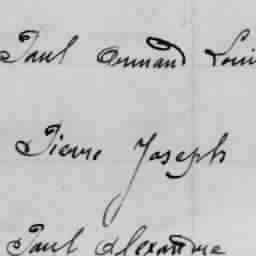 Paul Armand Loui
Pierre Joseph
Paul Alexandre